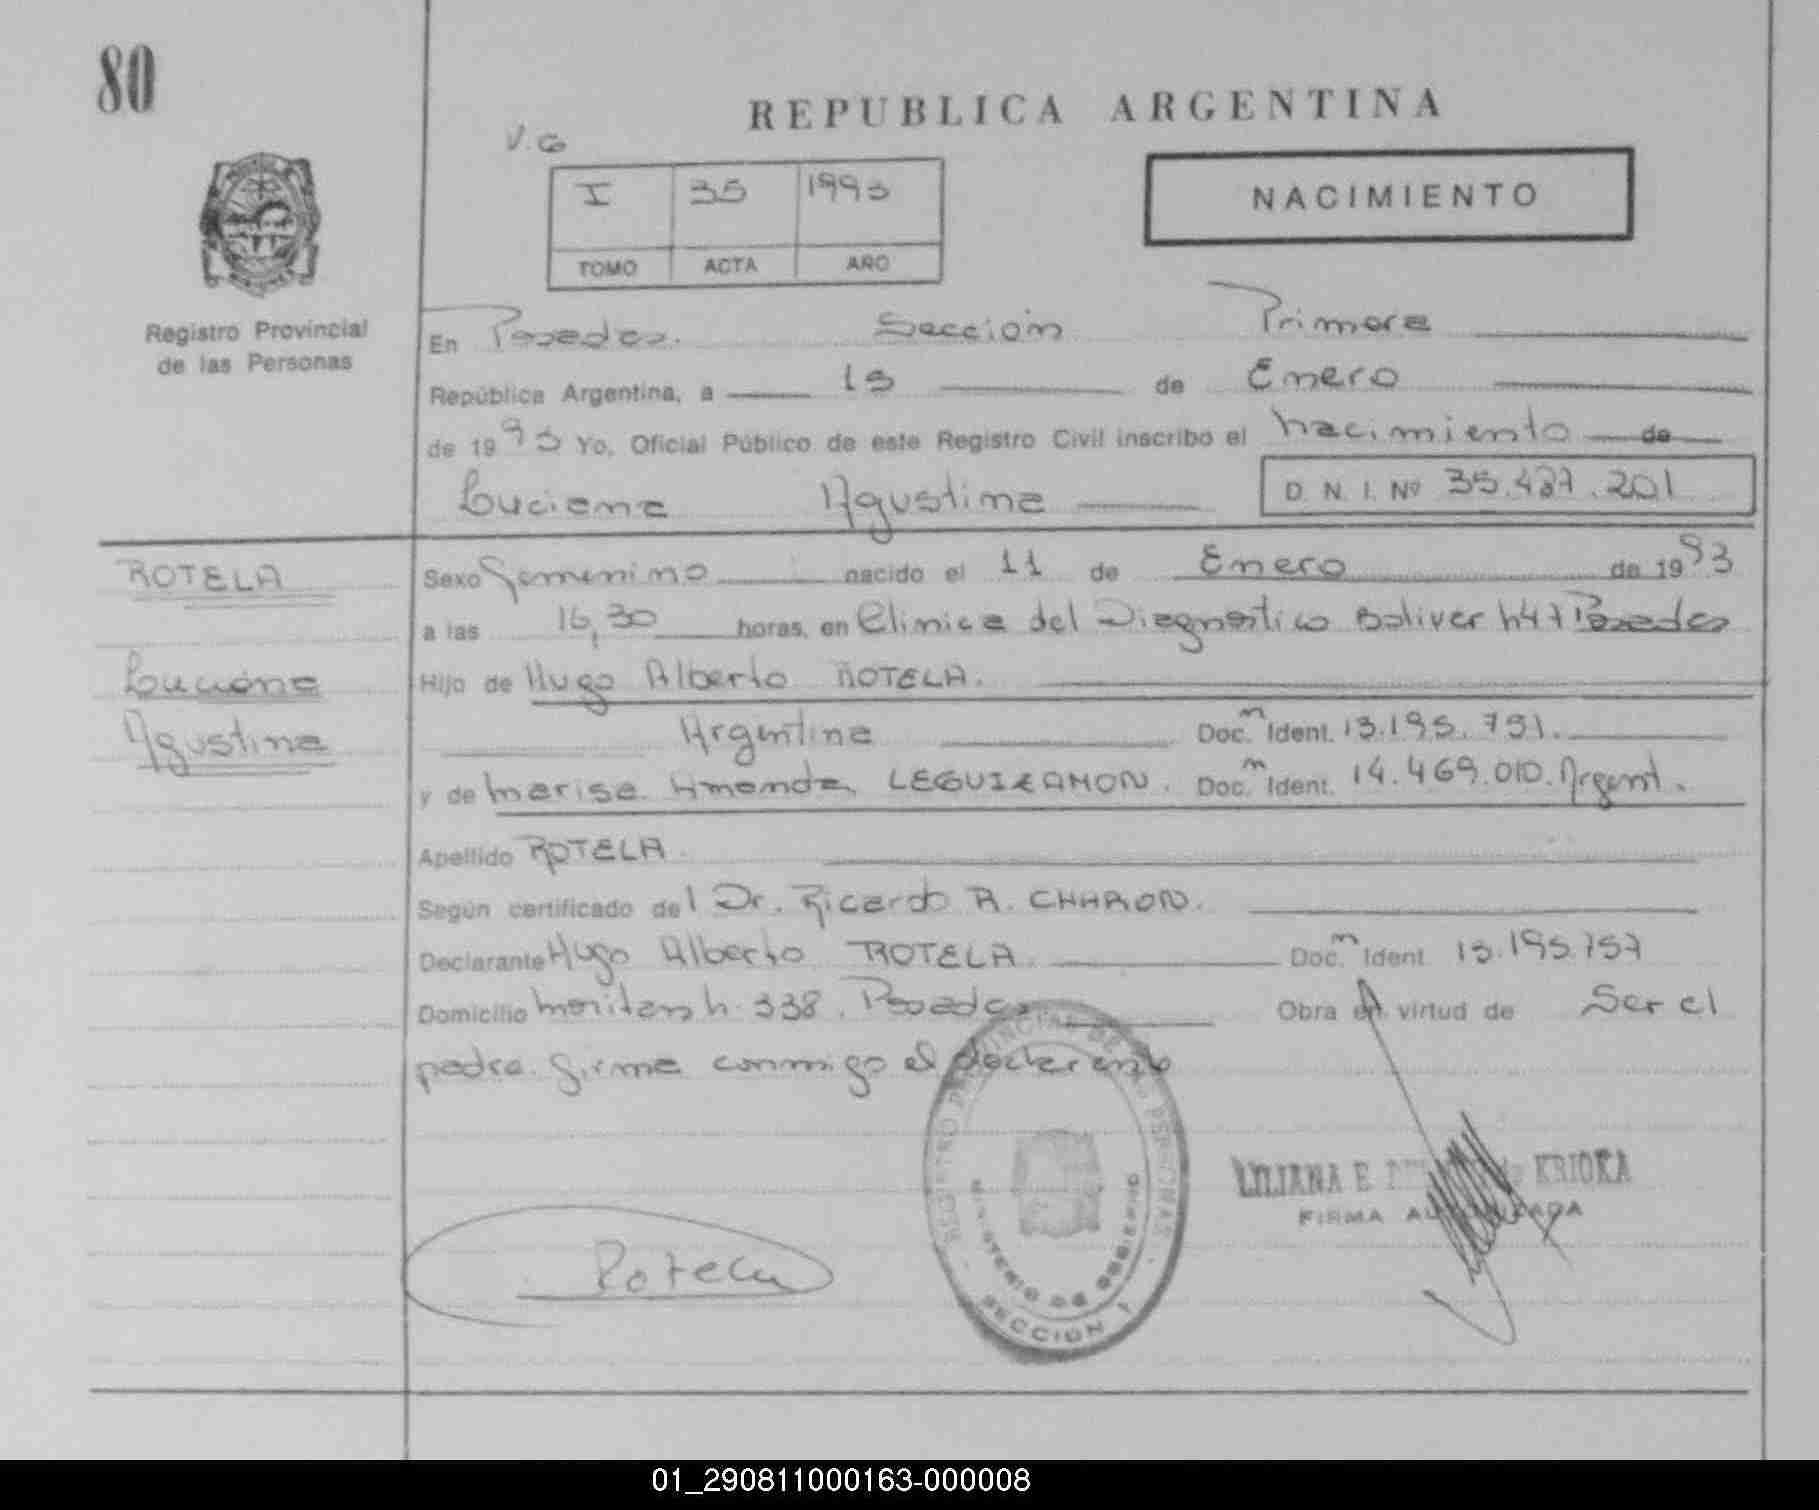 80
REPUBLICA ARGENTINA
V. Co
I 35 1993
TOMO ACTA AÑO
NACIMIENTO
Registro Provincial
de las Personas
En Posadas. Sección Primera
República Argentina, a 13 de Enero
de 1993 Yo, Oficial Público de este Registro Civil inscribo el nacimiento de
Luciana Agustina D. N. I. Nº 35.437.201
ROTELA
Luciana
Agustina
Sexo Femenino nacido el 11 de Enero de 1993
a las 16,30 horas, en Clinica del Diagnostico Bolivar 447 Posadas
Hijo de Hugo Alberto ROTELA.
Argentina Doc. Ident. 13.195.751.
y de Marisa Amanda LEGUIZAMON. Doc. Ident. 14.469.010. Argent.
Apellido ROTELA.
Según certificado del Dr. Ricardo R. CHARON.
Declarante Hugo Alberto ROTELA. Doc. Ident. 13.195.757
Domicilio 338. Posadas Obra en virtud de Ser el
padre. firma conmigo el declarante
REGISTRO PROVINCIAL DE LAS PERSONAS
MINISTERIO DE GOBIERNO
SECCION 1
LILIANA E. KRIOKA
FIRMA AUTORIZADA
Rotela
01_290811000163-000008